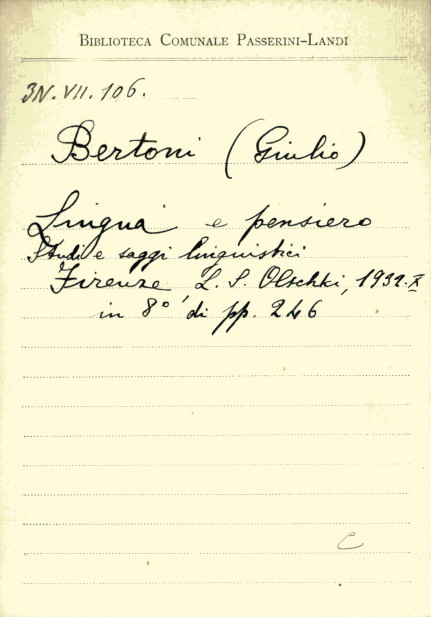 BIBLIOTECA COMUNALE PASSERINI-LANDI
3N.VII.106.
Bertoni (Giulio)
Lingua e pensiero
Studi e saggi linguistici
Firenze L. S. Olschki, 1932.X
in 8° di pp. 246
C